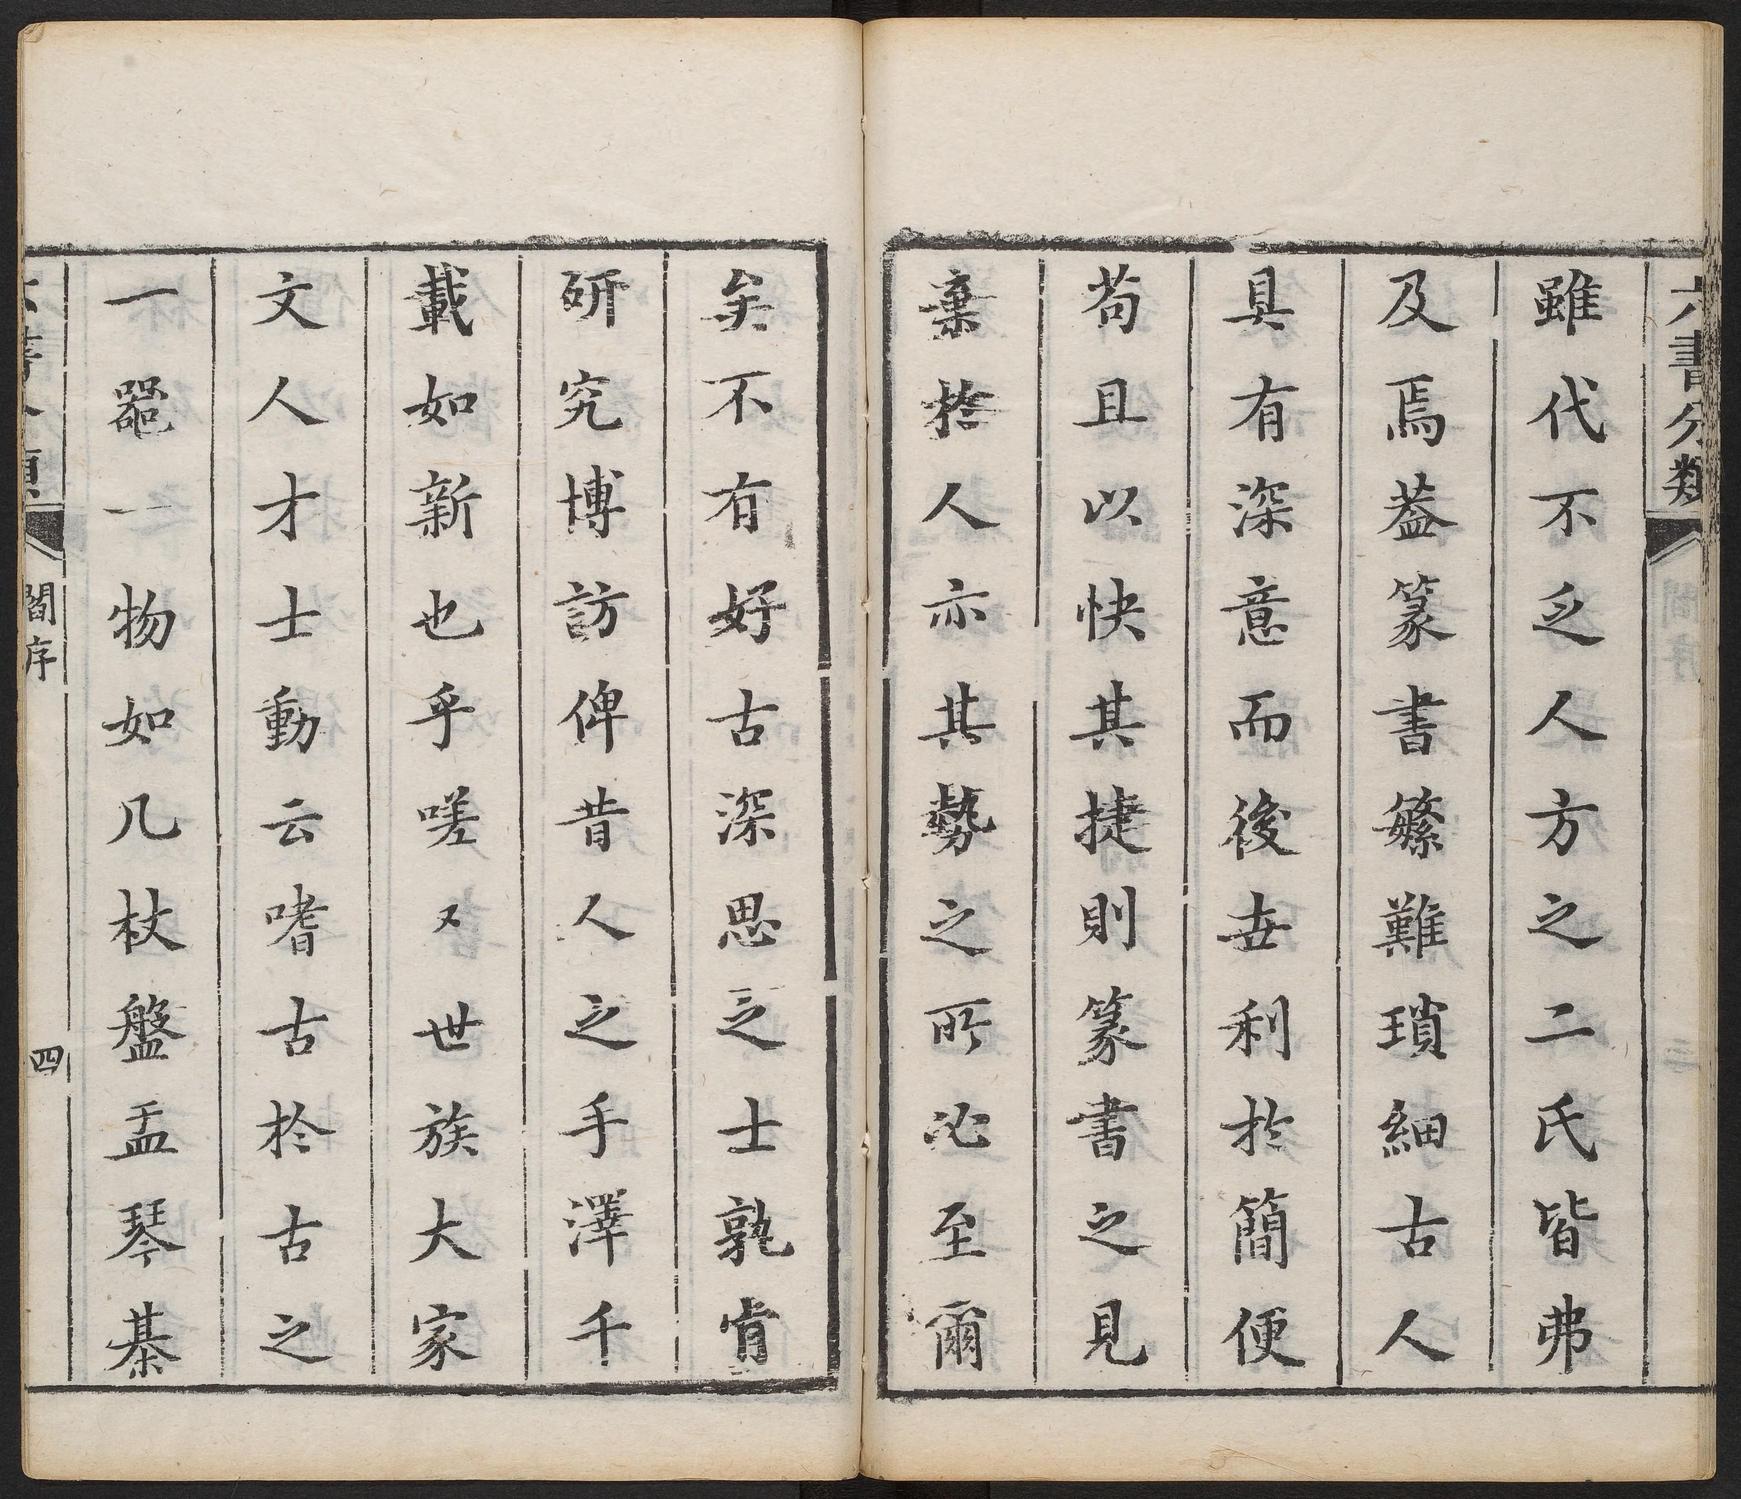 六書分類
雖代不乏人方之二氏皆弗
及焉葢篆書繁難瑣細古人
具有深意而後世利於簡便
苟且以快其捷則篆書之見
棄於人亦其勢之所必至爾
矣不有好古深思之士孰肯
硏究博訪俾昔人之手澤千
載如新也乎嗟又世族大家
文人才士動云嗜古於古之
一器一物如几杖盤盂琴棊
閻序
四